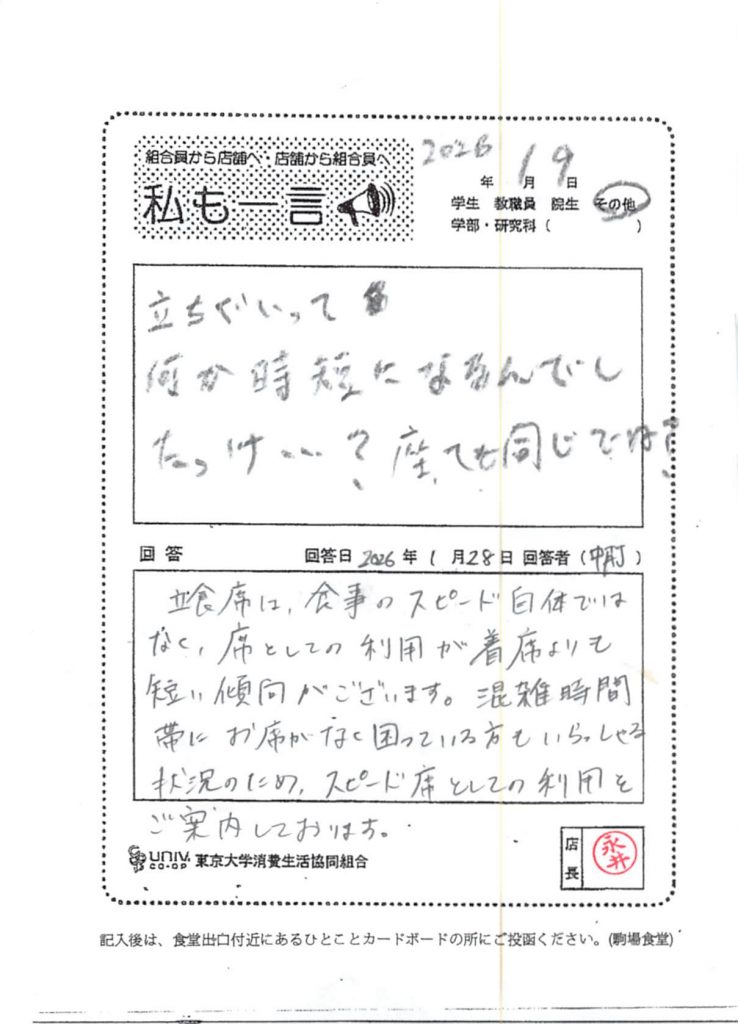 組合員から店舗へ・店舗から組合員へ
私も一言
2026 1 9
年 月 日
学生 教職員 院生 その他
学部・研究科( )
立ちぐいって
何か時短になるんでし
たっけ…? 座っても同じでは?
回答 回答日 2026 年 1 月 28 日 回答者 ( )
立食席は、食事のスピード自体では
なく、席としての利用が着席よりも
短い傾向がございます。混雑時間
帯にお席がなく困っている方もいらっしゃる
状況のため、スピード席としての利用を
ご案内しております。
UNIV. CO-OP 東京大学消費生活協同組合
店長 永井
記入後は、食堂出口付近にあるひとことカードボードの所にご投函ください。(駒場食堂)